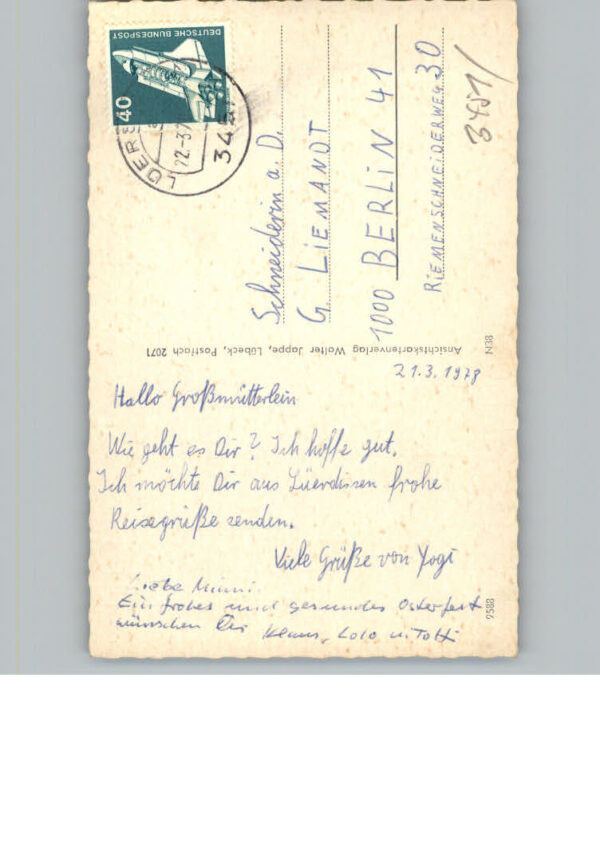 21.3.1978
Hallo Großmütterlein
Wie geht es Dir? Ich hoffe gut.
Ich möchte Dir aus Lüerdissen frohe
Reisegrüße senden.
Viele Grüße von Yogi
Liebe Mimi.
Ein frohes und gesundes Osterfest
wünschen Dir Klaus, Lolo u. Totti
Schneiderin a. D.
G. LIEMANDT
1000 BERLIN 41
RIEMENSCHNEIDERWEG 30
3451/
DEUTSCHE BUNDESPOST
40
22.-3.
Ansichtskartenverlag Walter Jappe, Lübeck, Postfach 2071
N38
9588